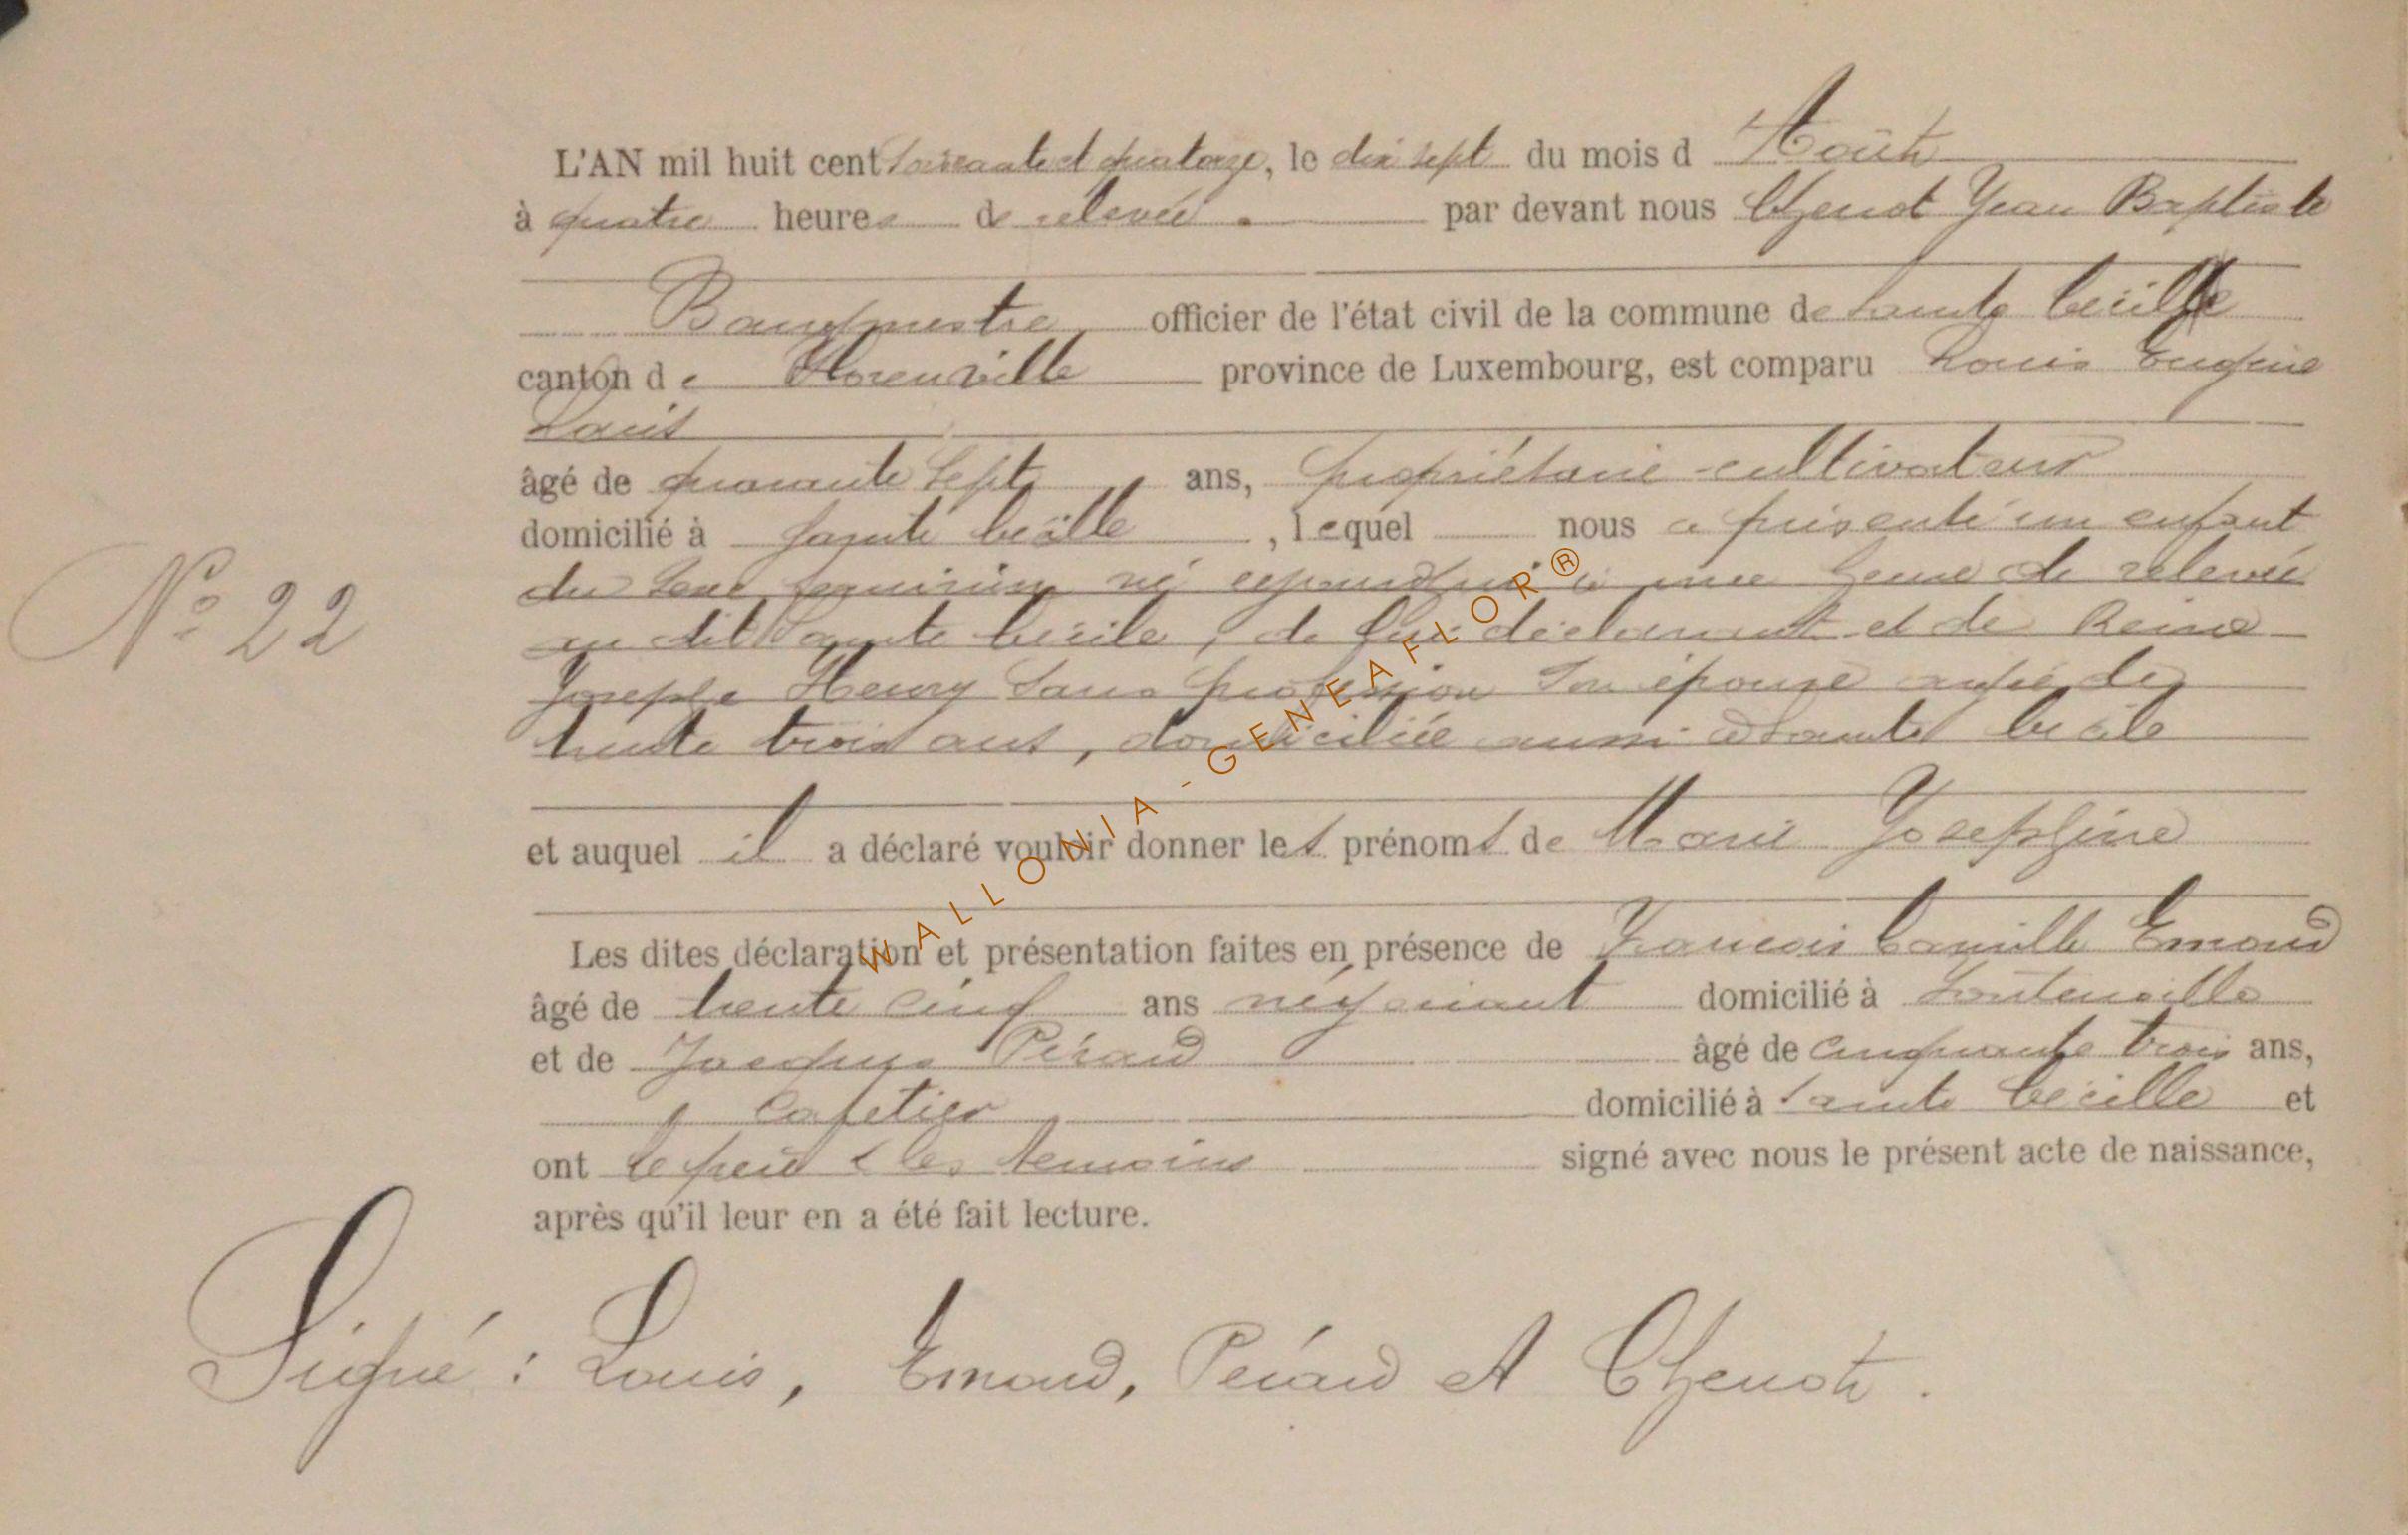 L'AN mil huit cent soixante et quatorze, le dix sept du mois d Août
à quatre heures de relevée. par devant nous Thenot Jean Baptiste
Bourgmestre officier de l'état civil de la commune de Sainte Cécille
canton de Florenville province de Luxembourg, est comparu Louis Eugène
Louis
âgé de quarante sept ans, propriétaire-cultivateur
domicilié à Sainte Cécille, lequel nous a présenté un enfant
du sexe feminin né cejourd'hui à une heure de relevée
au dit Sainte Cécile, de lui déclarant et de Reine
Josephe Henry sans profession son épouse agée de
trente trois ans, domiciliée aussi à Sainte Cécile
N° 22
et auquel il a déclaré vouloir donner les prénoms de Marie Josephine
Les dites déclaration et présentation faites en présence de François Camille Emond
âgé de trente cinq ans négociant domicilié à Fontenoille
et de Jacques Pérard âgé de cinquante trois ans,
cafetier domicilié à Sainte Cécille et
ont le père & les temoins signé avec nous le présent acte de naissance,
après qu'il leur en a été fait lecture.
Signé : Louis, Emond, Pérard et Thenot.
WALLONIA - GENEAFLOR®